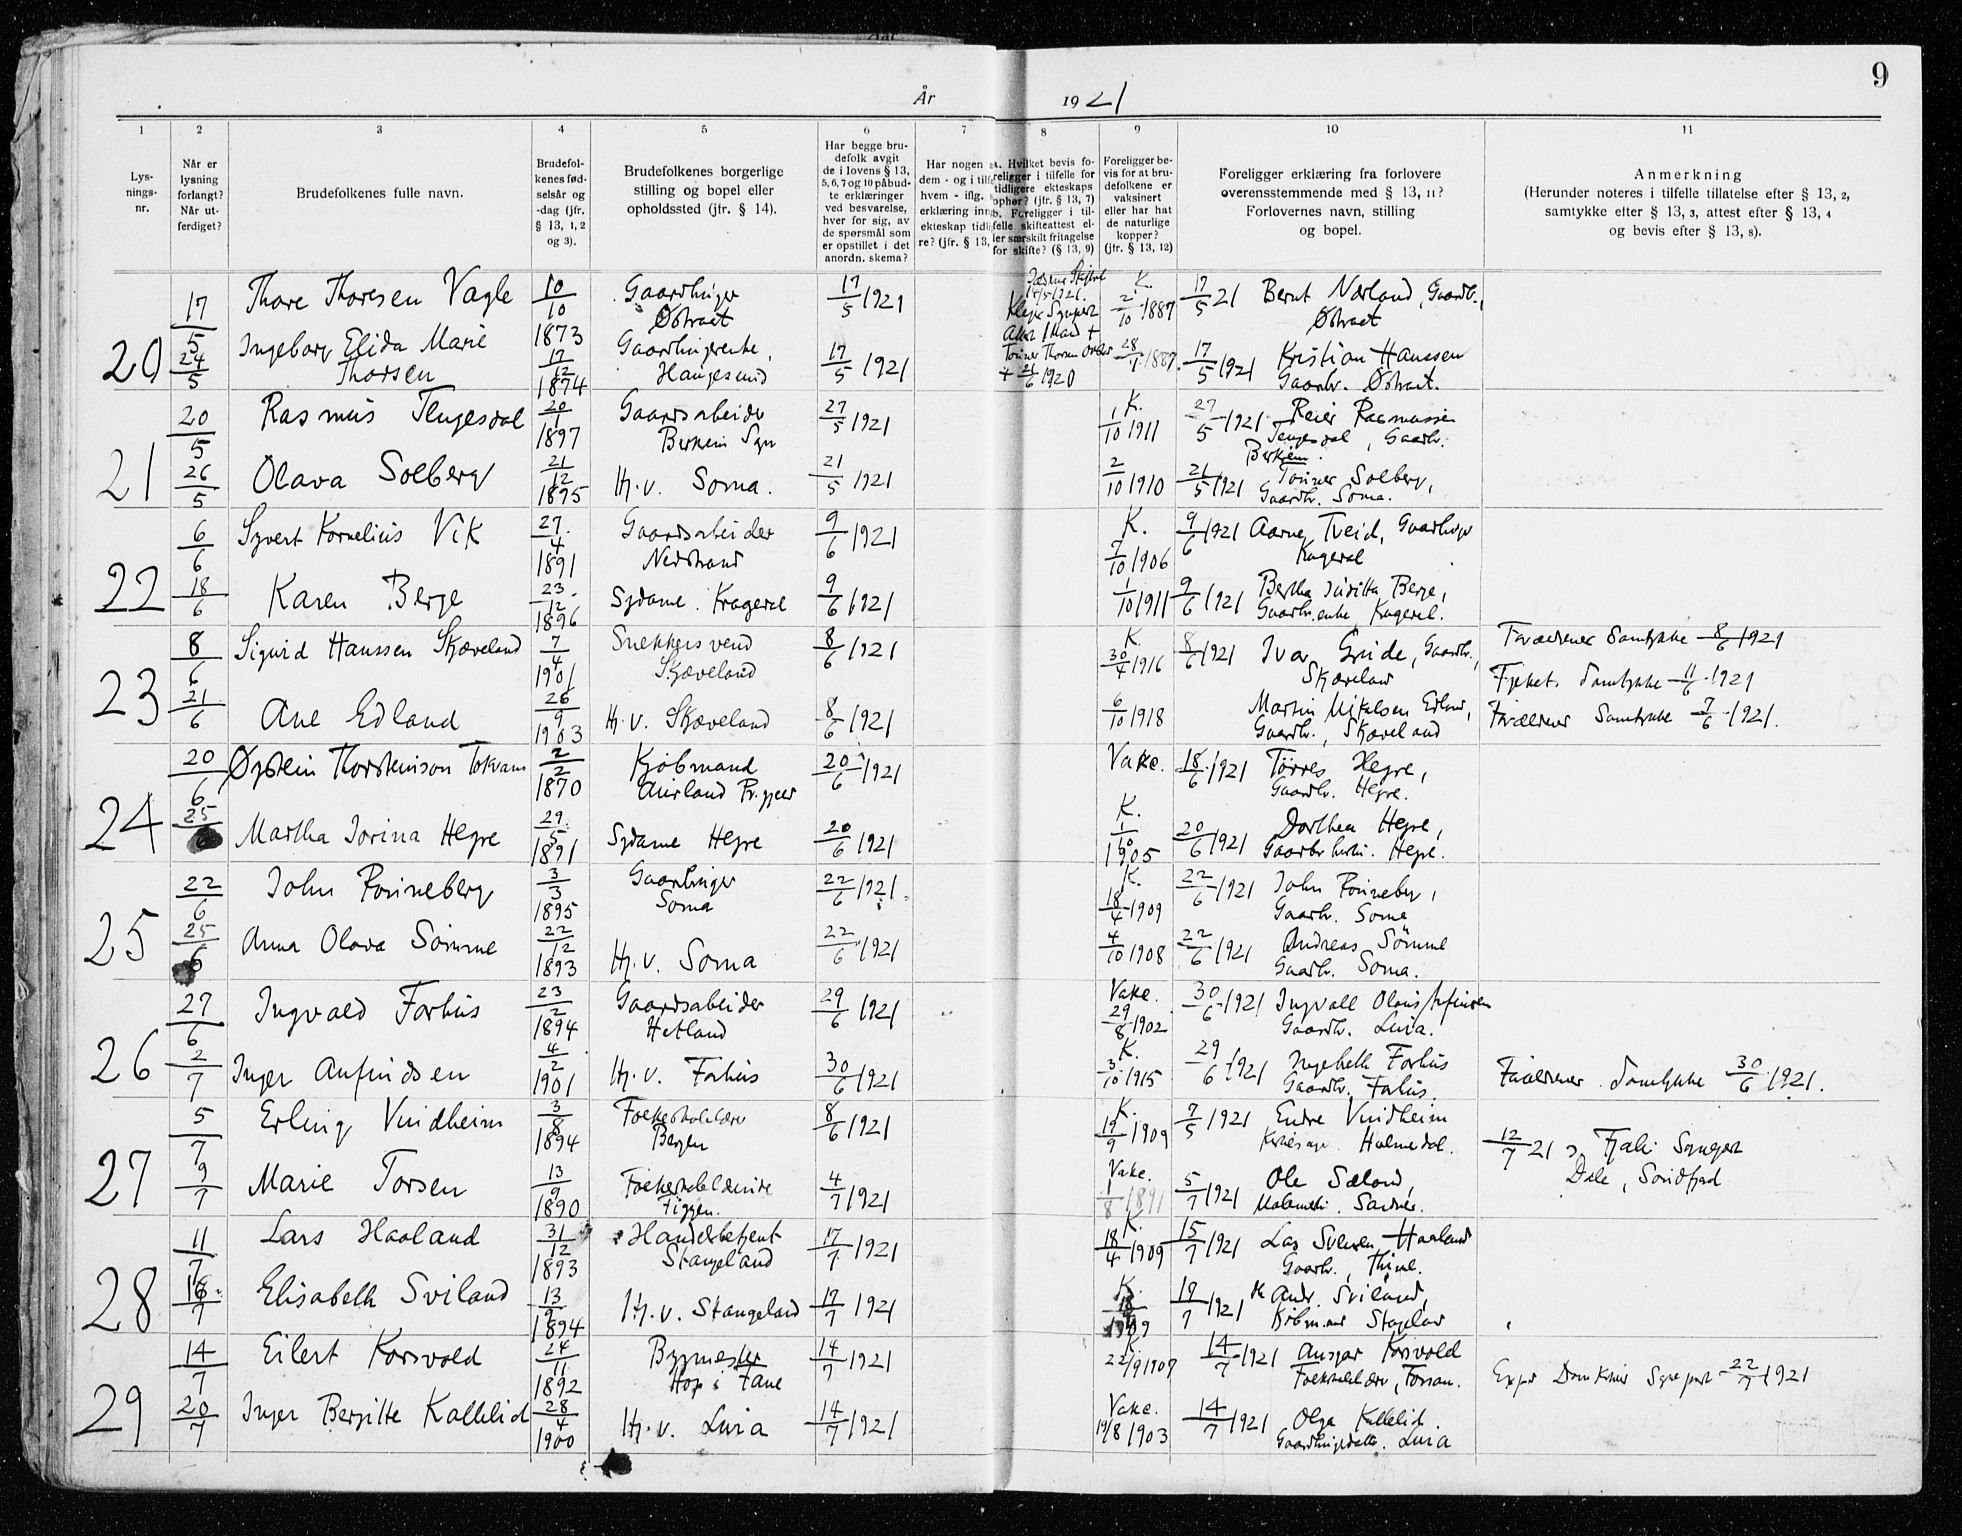 9
År 1921
1 2 3 4 5 6 7 8 9 10 11
Lys-
nings-
nr.
Når er
lysning
forlangt?
Når ut-
ferdiget?
Brudefolkenes fulle navn.
Brudefol-
kenes fød-
selsår og
-dag (jfr.
§ 13, 1, 2
og 3).
Brudefolkenes borgerlige
stilling og bopel eller
opholdssted (jfr. § 14).
Har begge bru-
defolk avgit
de i lovens § 13,
5, 6, 7 og 10 påbud-
te erklæringer
ved besvarelse,
hver for sig, av
de spørsmål som
er opstillet i det
anordn. skema?
Har nogen a
dem - og i tilf
hvem - iflg.
erklæring inn
ekteskap tidl
re? (jfr. § 13,
a. Hvilket bevis fo-
religger i tilfelle for
tidligere ekteskaps
ophør? (jfr. § 13, 7)
b. Foreligger i til-
felle skifteattest el-
ler særskilt fritagelse
for skifte? (§ 13, 9)
Foreligger be-
vis for at bru-
defolkene er
vaksinert
eller har hat
de naturlige
kopper?
(jfr. § 13, 12)
Foreligger erklæring fra forlovere
overensstemmende med § 13, 11?
Forlovernes navn, stilling
og bopel.
Anmerkning
(Herunder noteres i tilfelle tillatelse efter § 13, 2,
samtykke efter § 13, 3, attest efter § 13, 4
og bevis efter § 13, 8).
20 17/5 Thore Thoresen Vagle 10/10 1873 Gaardbruger 17/5 1921 K. 2/10 1887 17/5 21 Bernt Nærland, Gaardb.,
24/5 Ingeborg Elida Marie
Thorsen 17/12 1874 Gaardbrugerenke, Haugesund 17/5 1921 + 21/6 1920 17/5 1921 Kristian Hanssen
Gaardbr.
21 20/5 Rasmus Tengesdal 20/1 1897 Gaardsarbeider 27/5 1921 K. 1/10 1911 27/5 1921 Reier Rasmussen
Tengesdal, Gaardbr.
26/5 Olava Solberg 21/12 1895 Hj.v. Soma. 21/5 1921 2/10 1910 21/5 1921 Solberg,
Gaardbr. Soma.
22 6/6 Syvert Kornelius Vik 27/4 1891 Gaardsarbeider
Nedstrand 9/6 1921 K. 7/10 1906 9/6 1921 Aarne Tveid, Gaardbruger
18/6 Karen Berge 23/12 1896 Sydame. 9/6 1921 1/10 1911 9/6 1921 Bertha Juditta Berge,
Gaardbr.enke
23 8/6 Sigurd Hanssen Skjæveland 7/4 1901 Snekkersvend
Skjæveland 8/6 1921 K. 30/4 1916 8/6 1921 Ivar Gride, Gaardbr., Forældrenes Samtykke 8/6 1921
Skjæveland
21/6 Ane Edland 26/9 1903 Hj.v. Skjæveland 8/6 1921 6/10 1918 Martin Mikalsen Edland, Samtykke 11/6 1921
Gaardbr., Skjæveland Forældrenes Samtykke 7/6 1921.
24 20/6 Øystein Thorsteinson Tokvam 2/2 1870 Kjøbmand
Aurland 20/6 1921 Vakc. 18/6 1921 Tørres Hegre,
Gaardbr. Hegre.
25/6 Martha Jorina Hegre 29/5 1891 Sydame Hegre 20/6 1921 K. 1/10 1905 20/6 1921 Dorthea Hegre,
Hegre.
25 22/6 John Rønneberg 3/3 1895 Gaardbruger
Soma 22/6 1921 K. 18/4 1909 22/6 1921 John Rønneberg,
Gaardbr. Soma
25/6 Anna Olava Sømme 22/12 1893 Hj.v. Soma 22/6 1921 4/10 1908 22/6 1921 Andreas Sømme
Gaardbr. Soma.
26 27/6 Ingvald Forhus 23/2 1894 Gaardsarbeider
Hetland 29/6 1921 Vakc. 29/8 1902 30/6 1921 Ingvall Olaus Anfinsen
Gaardbr. Lura.
2/7 Inger Anfindsen 4/2 1901 Hj.v. Forhus 30/6 1921 K. 3/10 1915 29/6 1921 Ingebeth Forhus Forældrenes Samtykke 30/6 1921.
Gaardbr. Forhus
27 5/7 Erling Vindheim 3/8 1894 Folkeskolelærer
Bergen 8/6 1921 K. 19/9 1909 7/5 1921 Endre Vindheim
Holmedal. 12/7 21 Fjaler Sognepr
9/7 Marie Torsen 13/9 1890 Folkeskolelærerinde
Figgen. 4/7 1921 Vakc. 1/8 1891 5/7 1921 Ole Sæland, Dale, Søndfjord
Sandnes.
28 11/7 Lars Haaland 31/12 1893 Handelsbetjent
Stangeland 17/7 1921 K. 18/4 1909 15/7 1921 Lars Svensen Haaland
Gaardbr., Thime.
18/7 Elisabeth Sviland 13/9 1894 Hj.v. Stangeland 17/7 1921 K. 18/4 1909 19/7 1921 Andr. Sviland,
29 14/7 Eilert Korsvold 24/11 1892 Bygmester
Hop i Fane 14/7 1921 K 22/9 1907 14/7 1921 Ansgar Korsvold
Folkeskolelærer, 22/7 1921
20/7 Inger Bergitte Kallelid 28/4 1900 Hj.v. Lura 14/7 1921 Vakc. 19/8 1903 14/7 1921 Olga Kallelid.
Lura